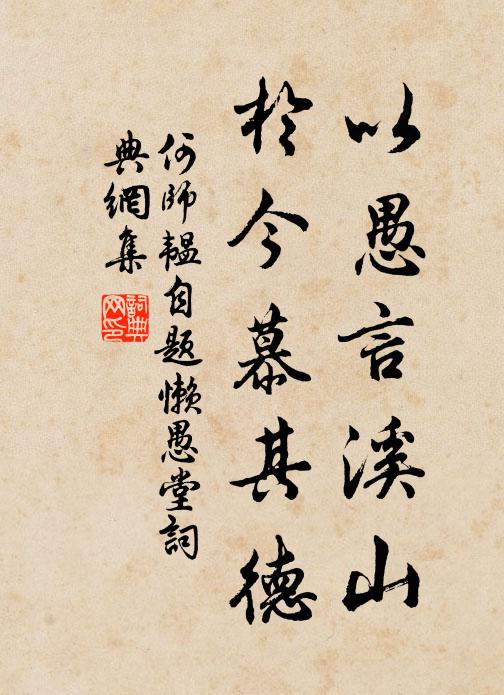 以愚言溪山
於今慕其德
何師韞自題懶愚堂詞
典網集
詞典
网印